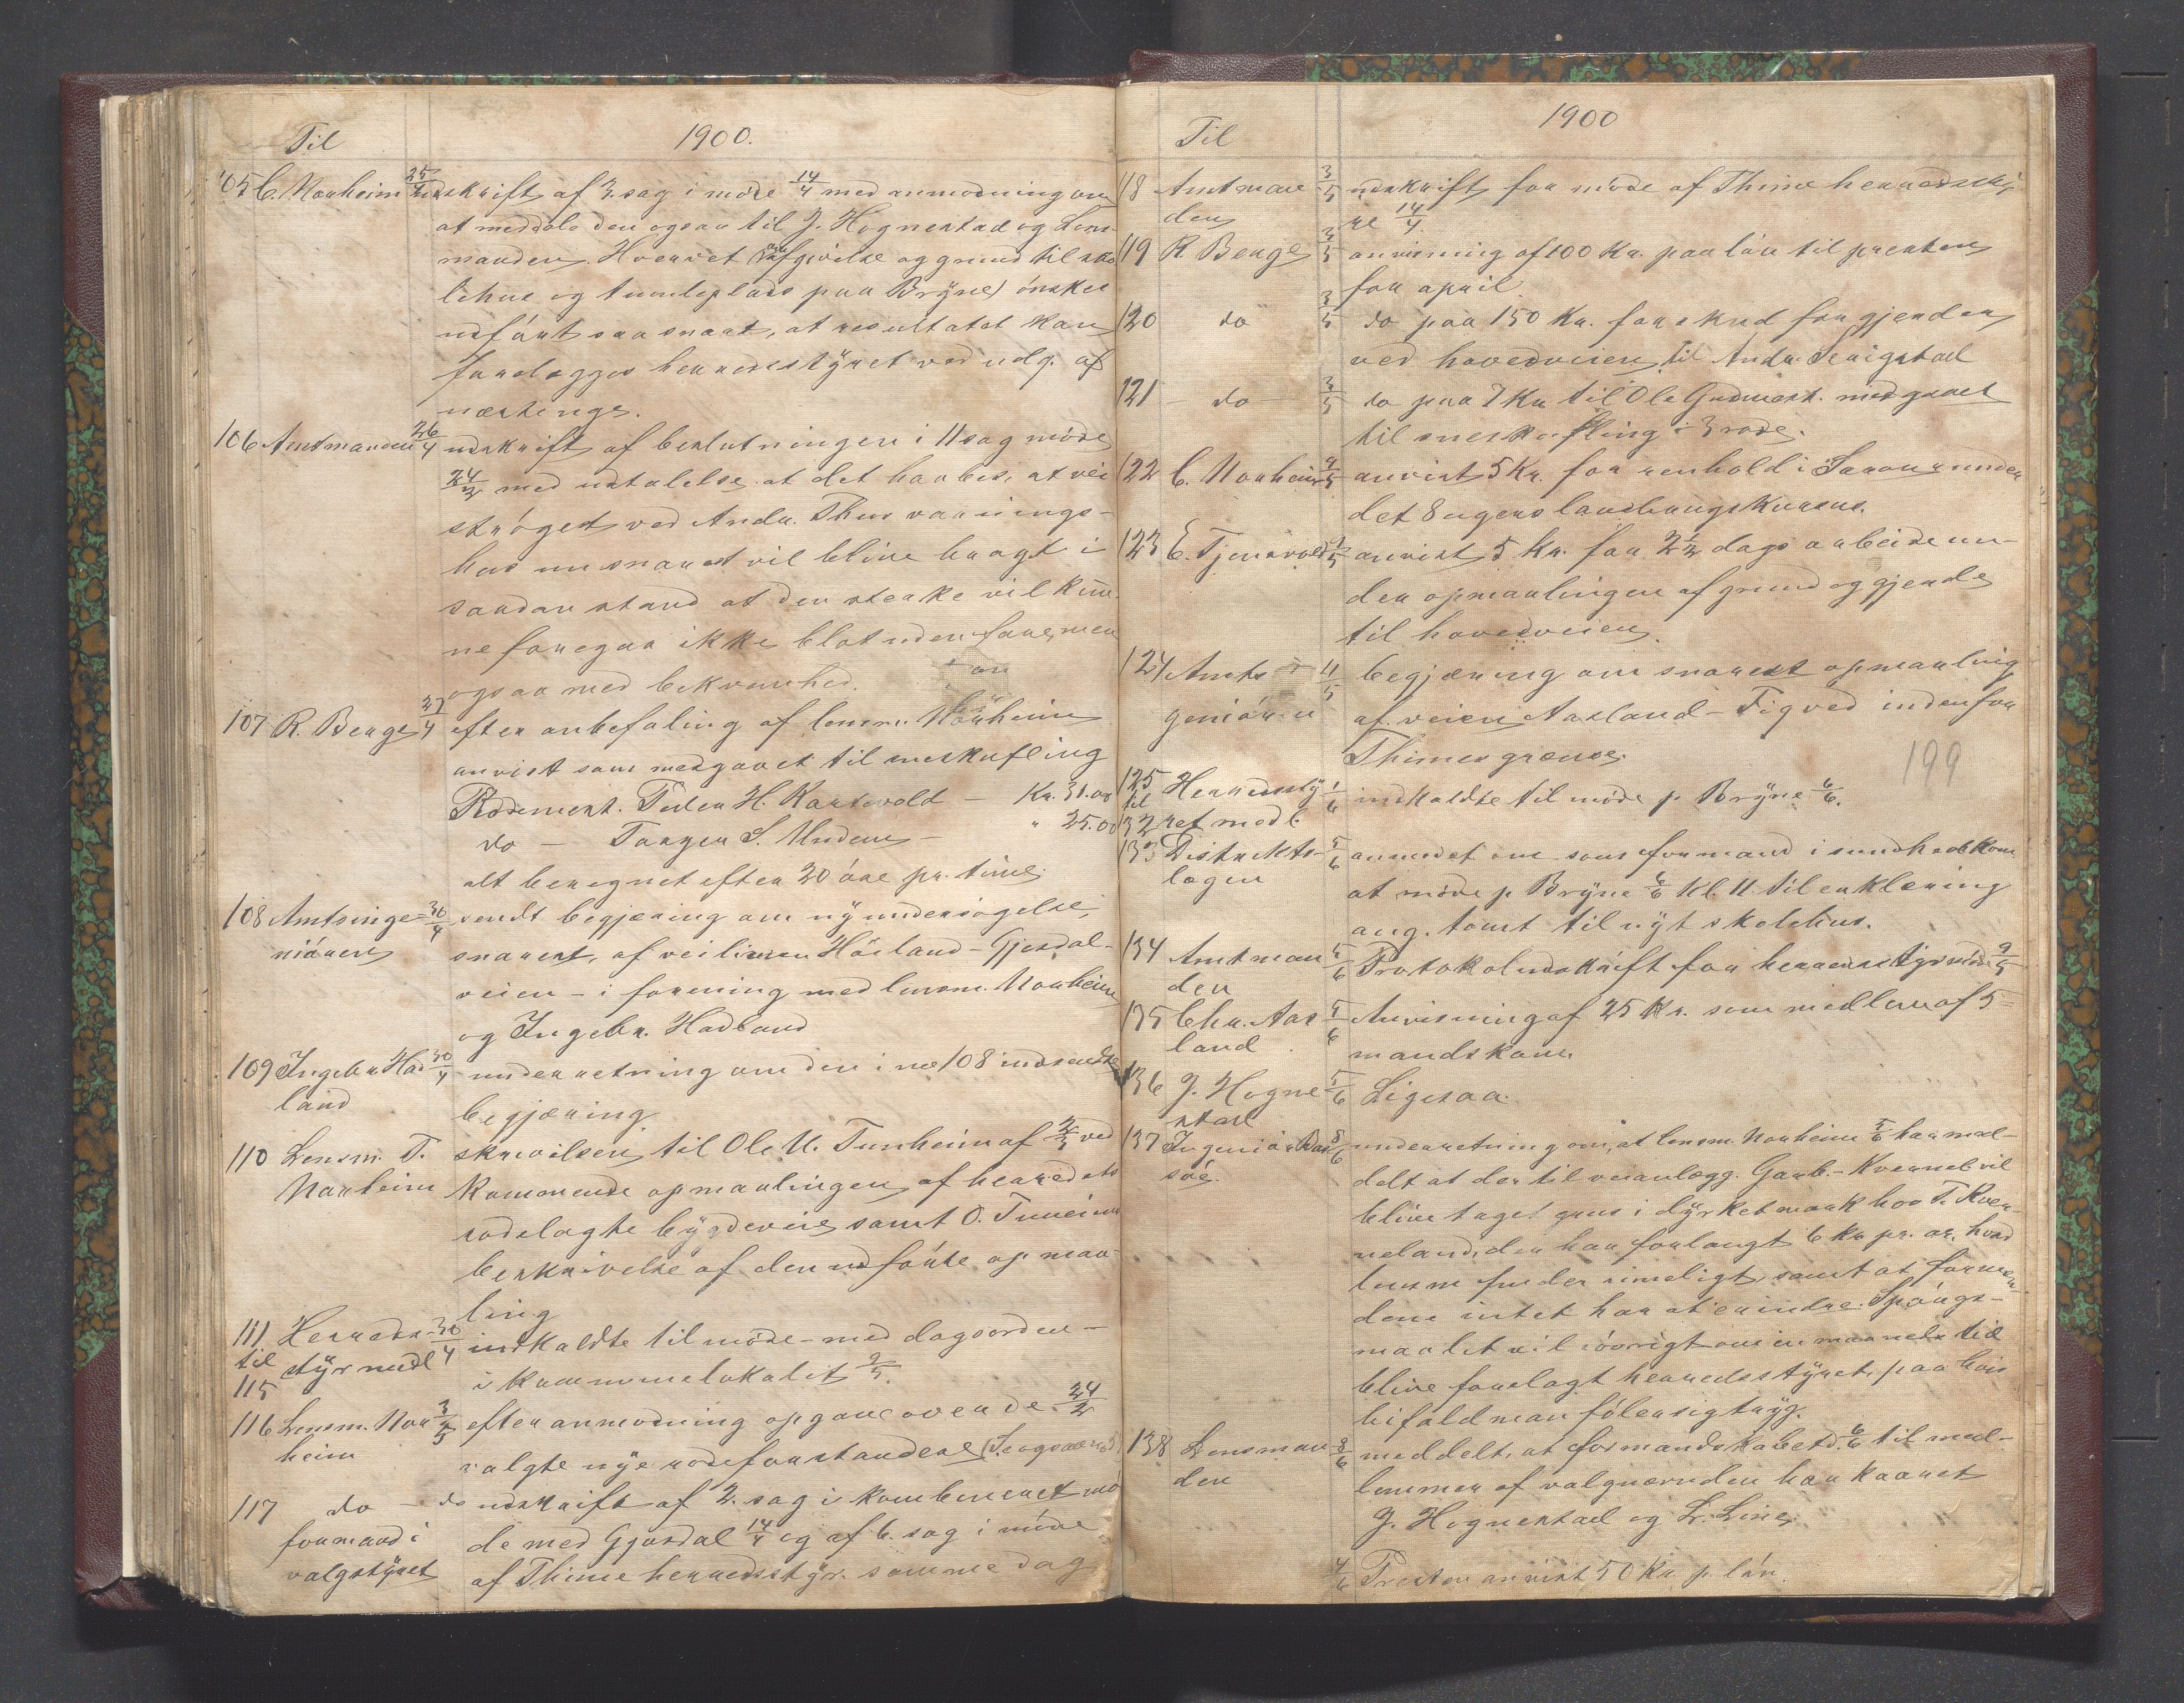 Til 1900.
105 C. Norheim 25/4 udskrift af 3. sag i møde 14/4 med anmodning om
at meddele den ogsaa til J. Hognestad og Lens-
manden. Hvervet om afgivelse og grund til sko
lehus og tumleplads paa Bryne ønskes
udført saa snart, at resultatet kan
forelægges herredsstyret ved udg. af
næste uge.
106 Amtmanden 26/4 udskrift af beslutningen i 11 sag møde
24/2 med udtalelse at det haabes, at vei
strøget ved Andr. Thus vaanings-
hus nu snarest vil blive bragt i
saadan stand at den sterke vil kun
ne foregaa ikke blot uden fare, men
ogsaa med bekvemhed.
107 R. Berge 27/4 efter anbefaling af lensm. Norheim
anvist som medgaaet til sneskufling
Rodemest. Peder H. Karlsvold — Kr. 31.00
do — Torger S. Undem — " 25.00
alt beregnet efter 20 øre pr. time.
108 Amtsinge- 30/4 sendt begjæring om ny undersøgelse,
niøren snarest, af veilinien Høiland – Gjesdal-
veien – i forening med lensm. Norheim
og Ingebr. Hadland
109 Ingebr Had 30/4 underretning om den i no 108 indsendte
land begjæring
110 Lensm. T. skrivelsen til Ole U. Tunheim af 2/5 ved
Norheim kommende opmaalingen af herredets
rodelagte bygdeveie samt O. Tunheims
beskrivelse af den udførte opmaa-
ling
111 Herreds- 30/4 indkaldte til møde – med dagsorden –
til styrmedl i kommunelokalet 2/5.
115
116 Lensm. Nor 3/5 efter anmodning opgave over de 24/2
heim valgte nye rodeforstandere
117 do – do udskrift af 2. sag i kombineret mø
formand i de med Gjesdal 14/4 og af 6. sag i møde
valgstyret af Thime herredsstyr. samme dag
Til 1900
118 Amtman 3/5 udskrift for møde af Thime herredssty
den re 14/4.
119 R Berge 3/5 anvisning af 100 Kr. paa løn til presten
for april
120 do 3/5 do paa 150 Kr. forskud for gjerder
ved hovedveien til Andr. Serigstad
121 – do – 3/5 do paa 7 Kr til Ole Gudmest. medgaaet
til sneskufling i 3 rode.
122 C. Norheim 9/5 anvist 5 Kr. for renhold i under
det 8 ugers landbrugskursus.
123 E. Tjensvold 9/5 anvist 5 Kr. for 2 1/2 dags arbeide un-
der opmaalingen af grund og gjerde
til hovedveien.
124 Amts 11/5 begjæring om snarest opmaaling
geniøren af veien Aasland – Figved indenfor
Thimes grænse.
199
125 Herredssty 1/6 indkaldte til møde p. Bryne 6/6.
til
132 ret medl.
133 Distrikts- 5/6 anmodet om som formand i sundhedskom
lægen at møde p. Bryne 6/6 kl. 11 til erklæring
ang. tomt til nyt skolehus.
134 Amtman 5/6 Protokoludskrift for herredsstyrmøde 9/5
den
135 Chr. Aas 5/6 Anvisning af 25 Kr. som medlem af 5-
land mandskom.
136 J. Hogne 5/6 Ligesaa.
stad
137 Ingeniør 8/6 underretning om, at lensm. Norheim 5/6 har med-
søe. delt at der til veianlægg. Garb.-Kvernel. vil
blive taget grus i dyrket mark hos T. Kver-
neland, der har forlangt 6 Kr pr. ar, hvad
lensm finder rimeligt, samt at forman
dene intet har at erindre. Spørgs-
maalet vil iøvrigt om en maaneds tid
blive forelagt herredsstyret, paa hvis
bifald man føler sig tryg.
138 Lensman 8/6 meddelt, at formandskabet d. 6/6 til med-
den lemmer af valgnævnden har kaaret
J. Hognestad og L. Line.
4/6 Presten anvist 50 Kr. p. løn.